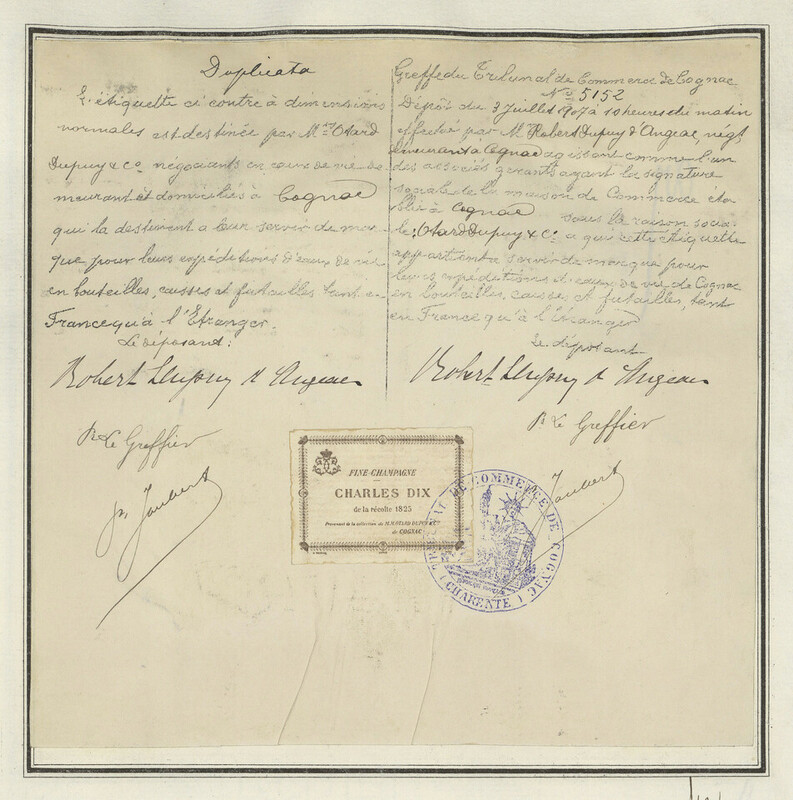 Duplicata
L'étiquette ci contre à dimensions
normales est destinée par Mrs Otard
Dupuy & Co négociants en eaux de vie de
meurant et domiciliés à Cognac
qui la destinent à leur servir de mar
que pour leurs expéditions d'eaux de vie
en bouteilles, caisses et futailles tant en
France qu'à l'Etranger.
Le déposant:
Robert Dupuy d'Angeac
Pr Le Greffier
Jaubert
Greffe du Tribunal de Commerce de Cognac
No 5152
Dépôt du 3 Juillet 1907 à 10 heures du matin
effectué par M. Robert Dupuy d'Angeac, négt
demeurant à Cognac agissant comme l'un
des associés gérants ayant la signature
sociale de la maison de Commerce éta
blie à Cognac sous la raison socia
le: Otard Dupuy & Co à qui cette étiquette
appartient à servir de marque pour
leurs expéditions d'eaux de vie de Cognac
en bouteilles, caisses et futailles, tant
en France qu'à l'étranger
Le déposant
Robert Dupuy d'Angeac
Pr Le Greffier
Jaubert
FINE-CHAMPAGNE
CHARLES DIX
de la récolte 1825
Provenant de la collection de MM. OTARD DUPUY & Co
de COGNAC
TRIBUNAL DE COMMERCE DE COGNAC
(CHARENTE)